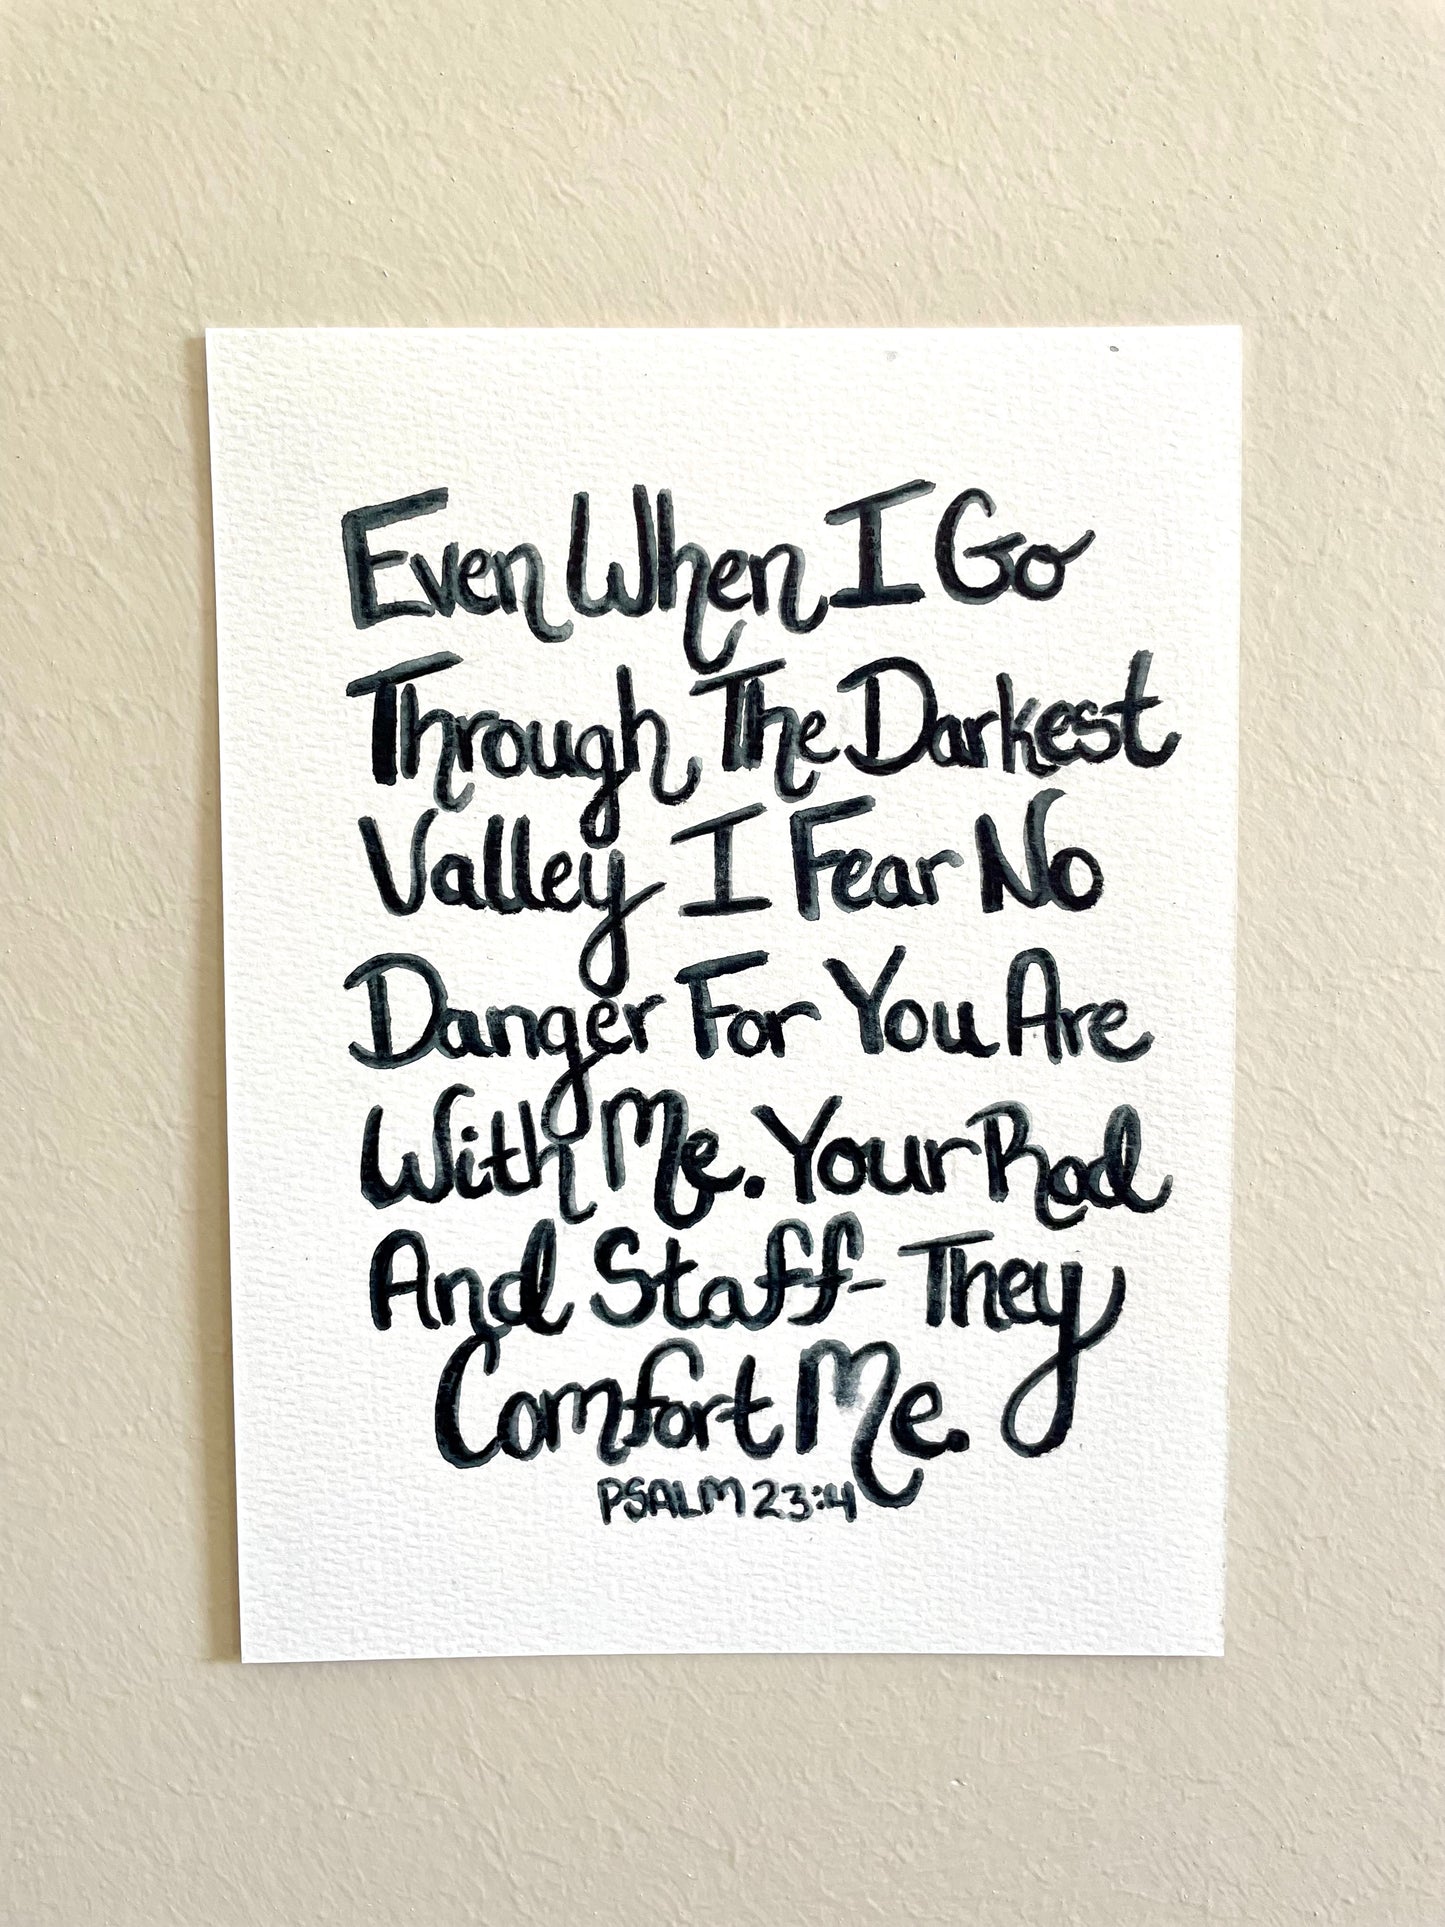 Even When I Go
Through The Darkest
Valley I Fear No
Danger For You Are
With Me. Your Rod
And Staff- They
Comfort Me.
PSALM 23:4